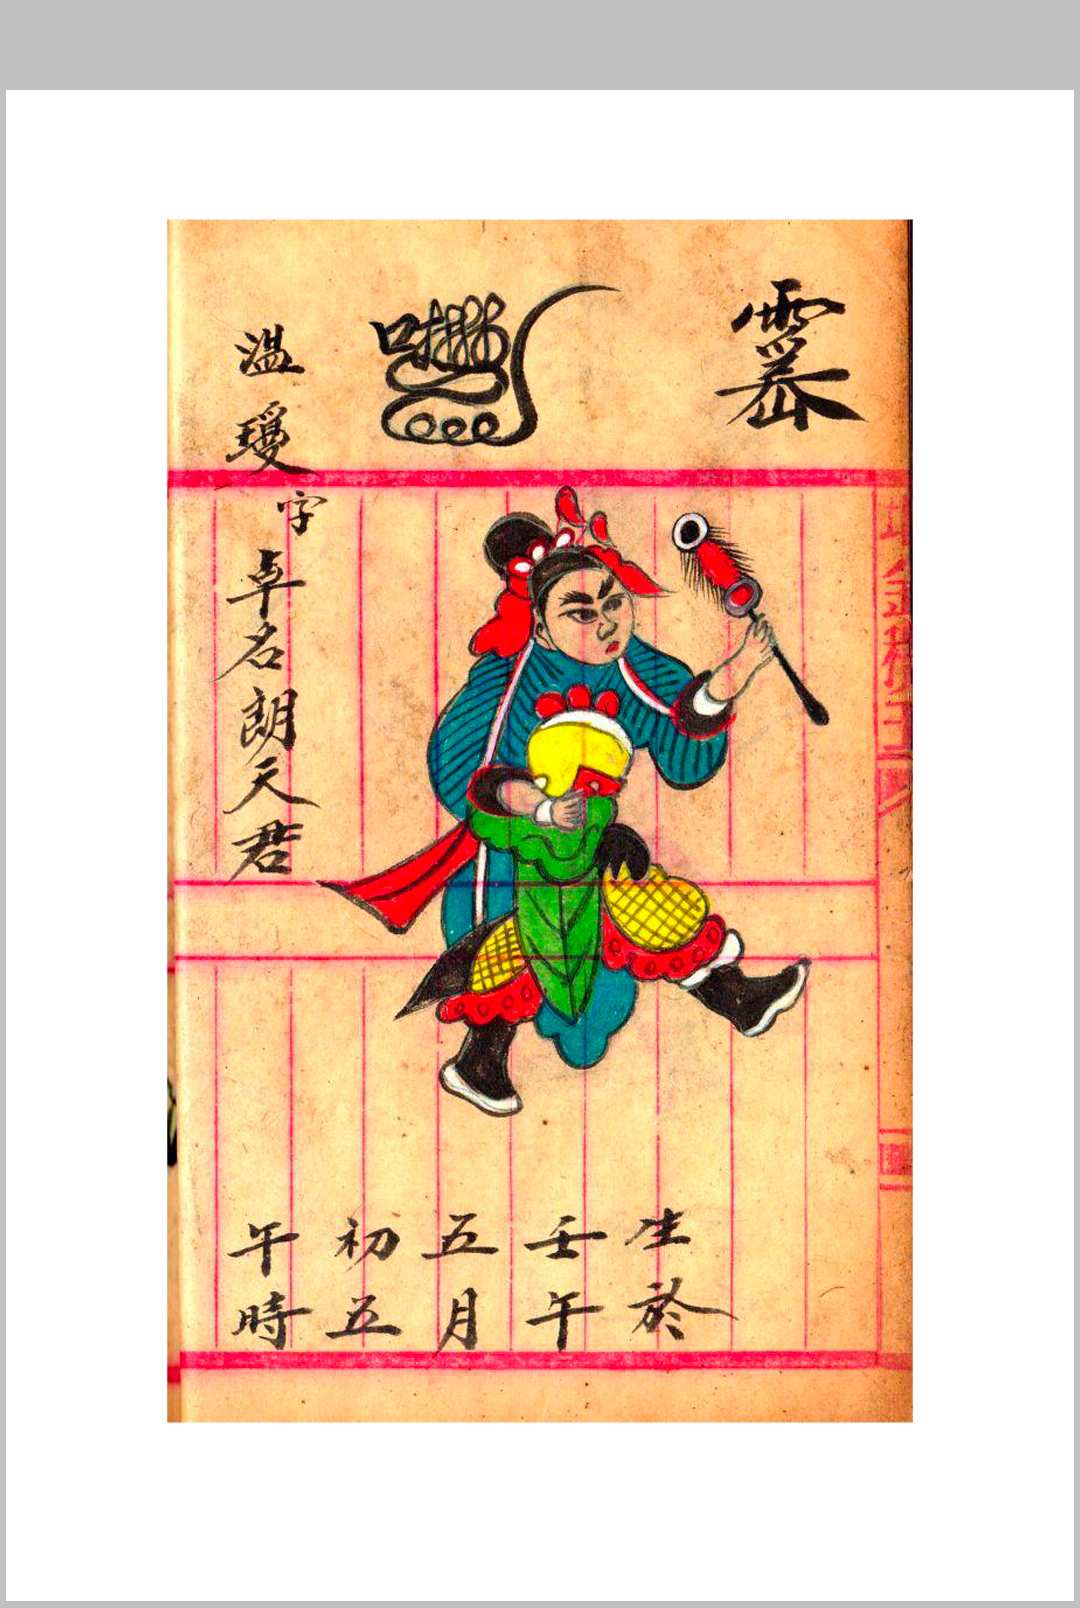 溫瓊字卓名朗天君
生於
壬午
五月
初五
午時